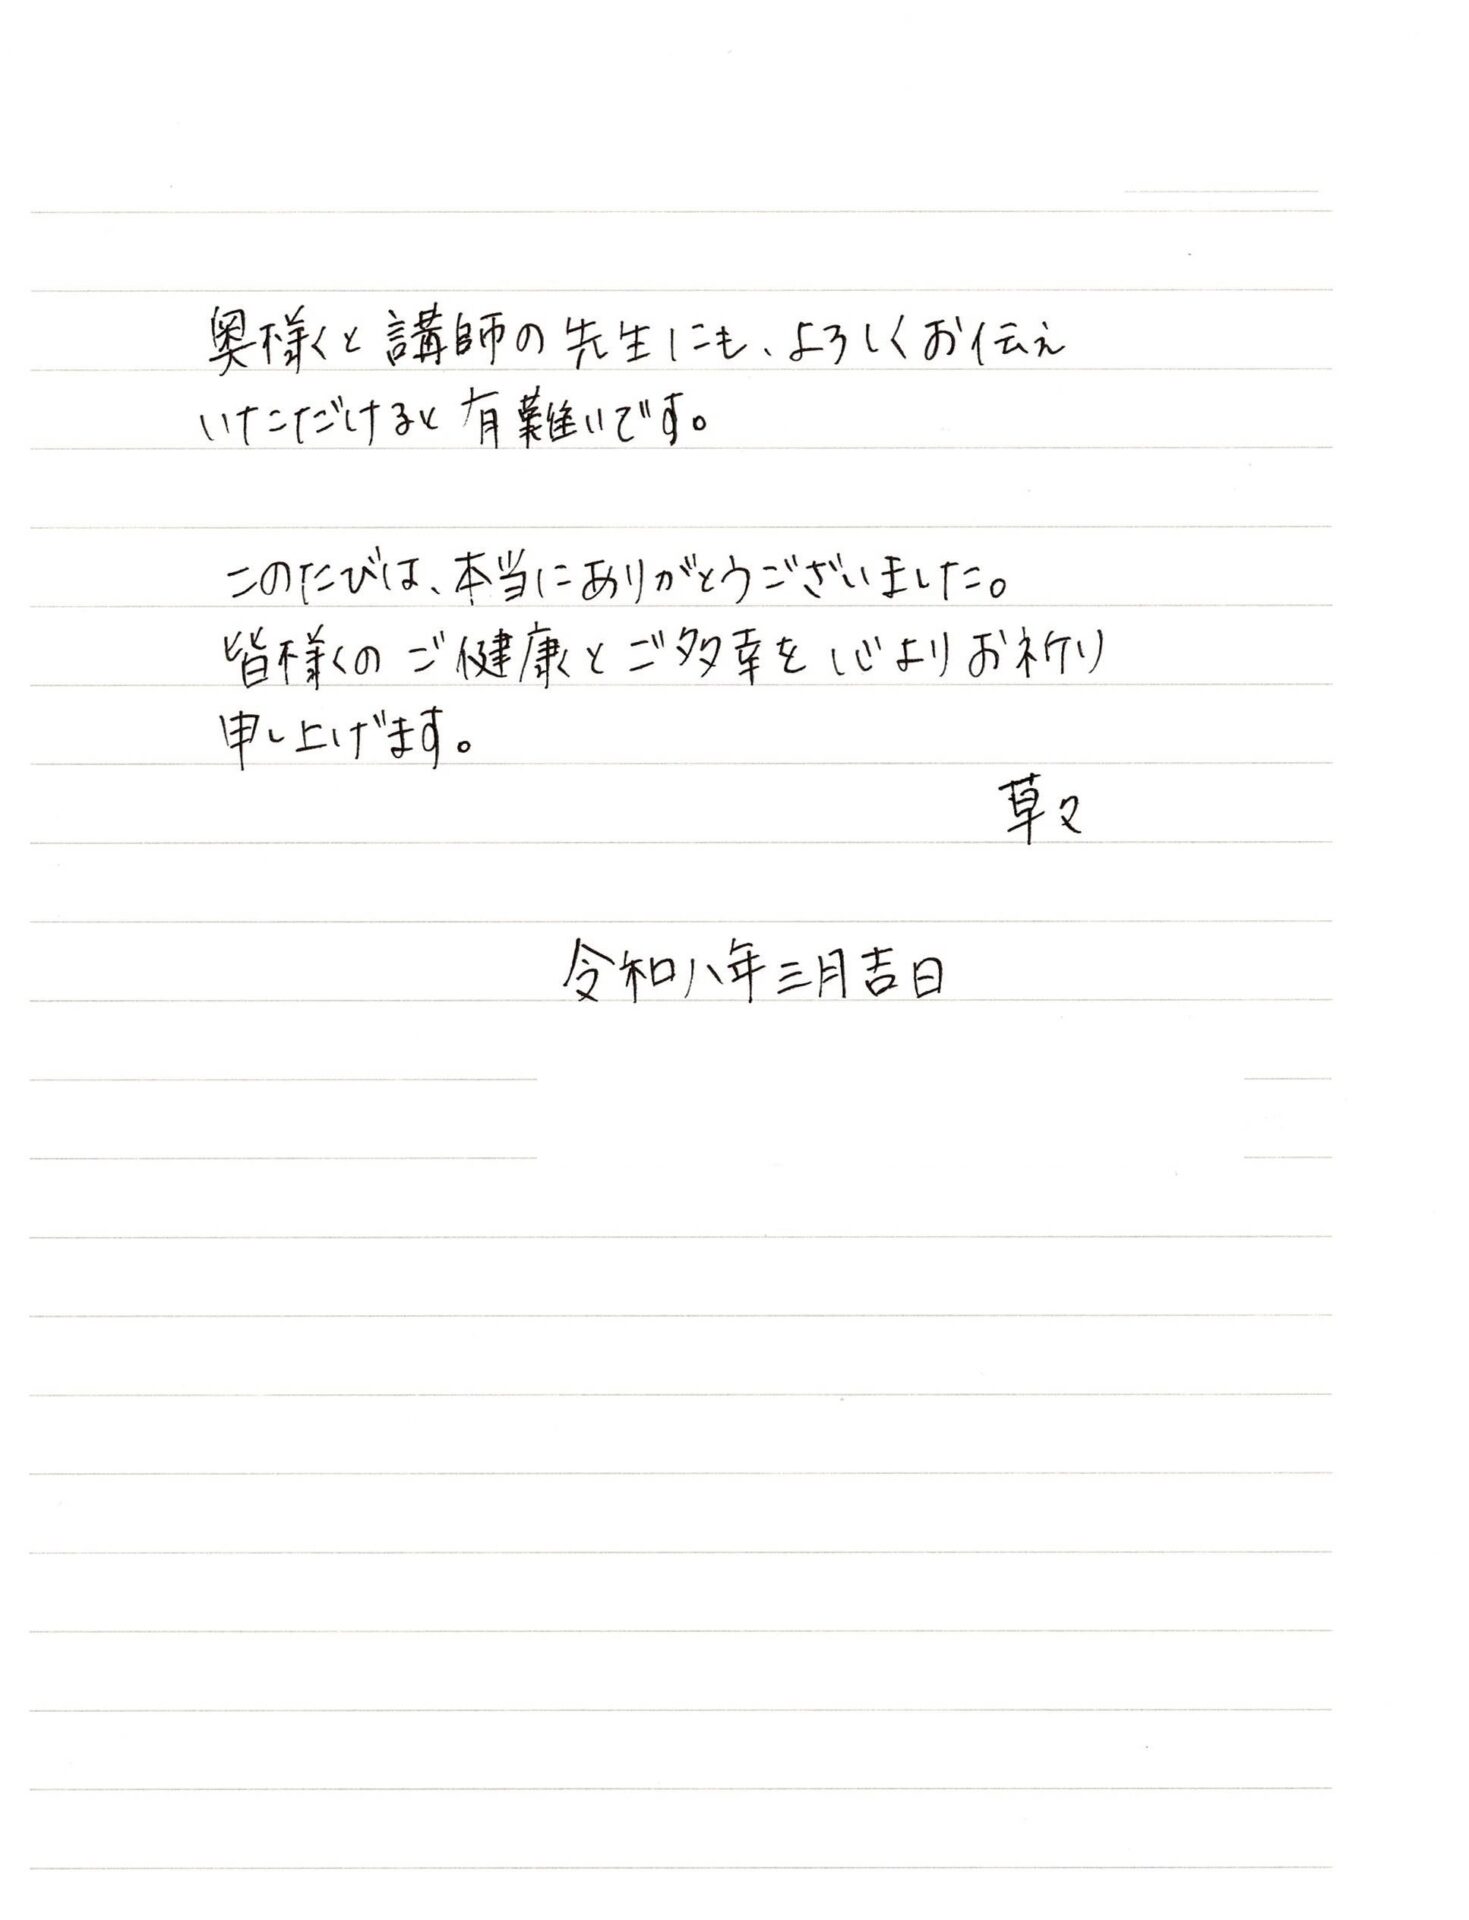 奥様と講師の先生にも、よろしくお伝え
いただけると有難いです。
このたびは、本当にありがとうございました。
皆様のご健康とご多幸を心よりお祈り
申し上げます。
草々
令和八年三月吉日